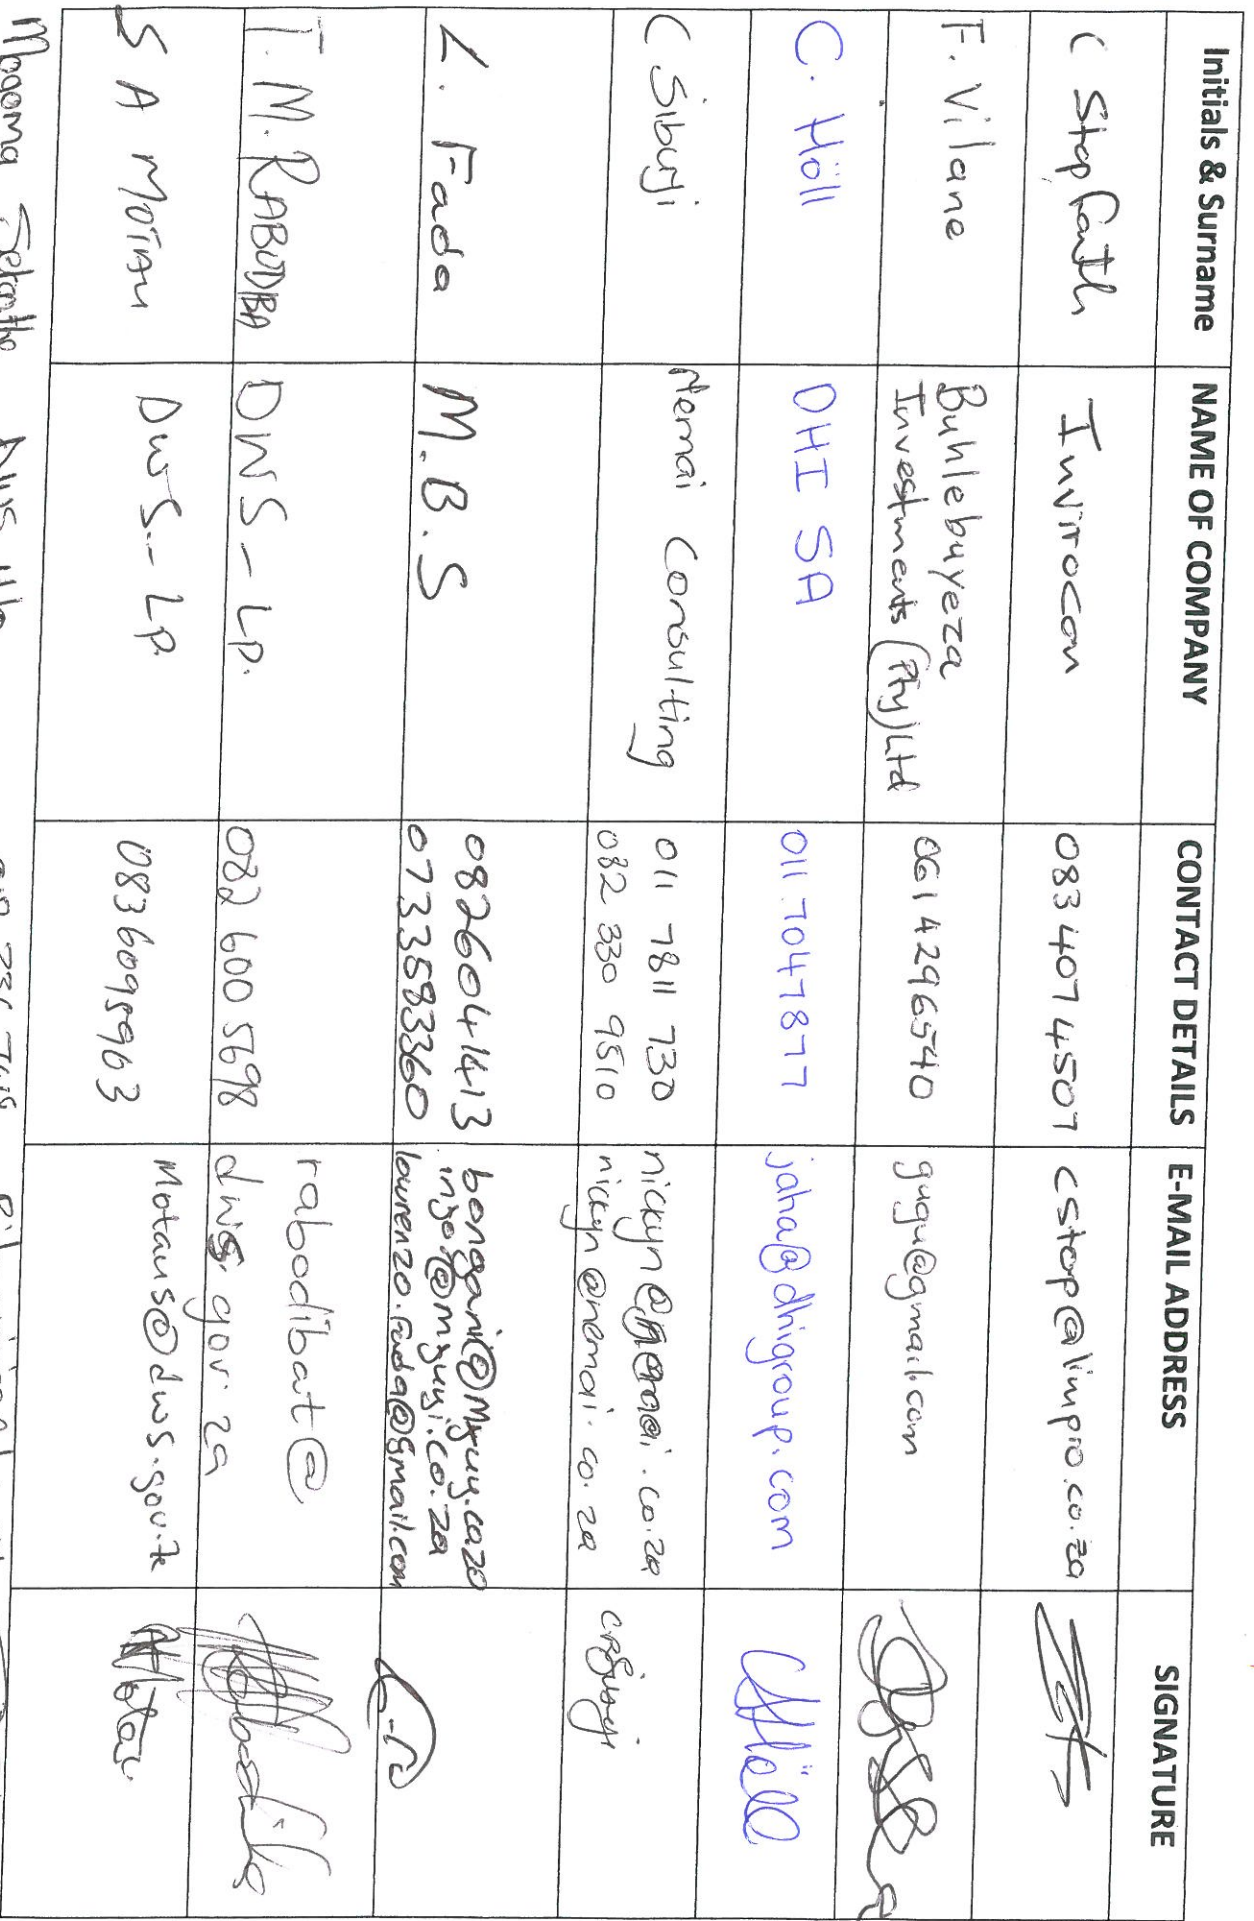 Initials & Surname NAME OF COMPANY CONTACT DETAILS E-MAIL ADDRESS SIGNATURE
C Stopforth Invirocon 083 407 4507 cstop@limpro.co.za
F. Vilane Buhlebuyeza Investments (Pty) Ltd 0614296540 gugu@gmail.com
C. Höll DHI SA 011 7047877 jaha@dhigroup.com CHöll
C Sibuyi Nemai Consulting 011 7811 730
082 330 9510 nickyn@nemai.co.za
L. Fada M.B.S 0826041413
0733583360 lourenzo.fada@gmail.com
T. M. RABODIBA DWS-LP. 082 600 5698 rabodibat@
dws.gov.za
S A MOTAU DWS-LP. 0836095963 Motaus@dws.gov.za
Mogoma Sekantho